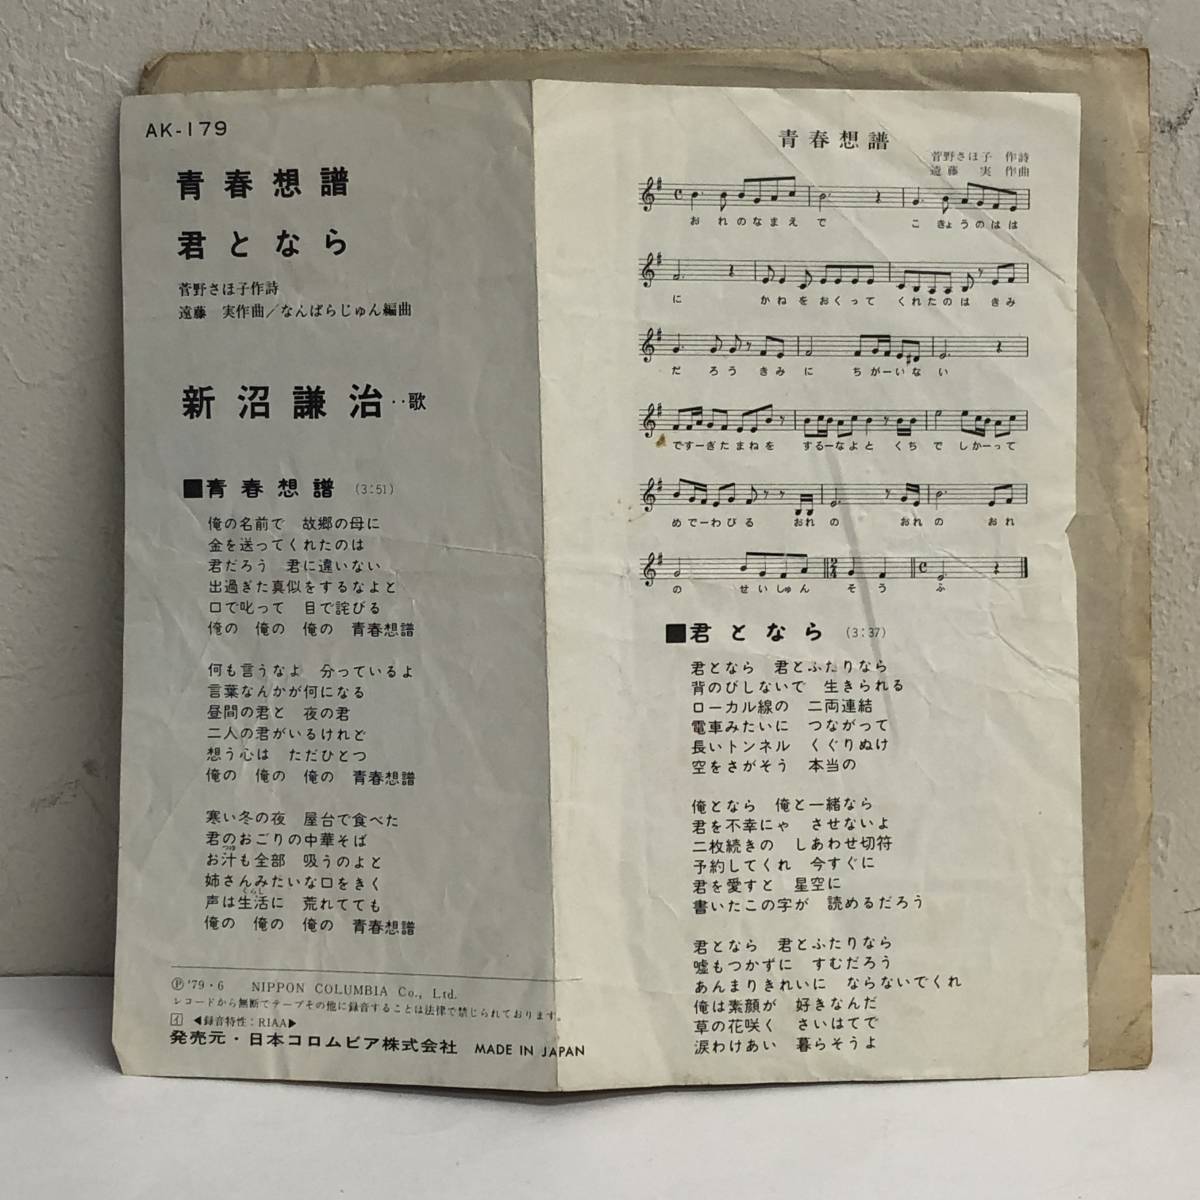 AK-179
青春想譜
君となら
菅野さほ子作詩
遠藤 実作曲／なんばらじゅん編曲
新沼謙治‥歌
■青春想譜 (3:51)
俺の名前で 故郷の母に
金を送ってくれたのは
君だろう 君に違いない
出過ぎた真似をするなよと
口で叱って 目で詫びる
俺の 俺の 俺の 青春想譜
何も言うなよ 分っているよ
言葉なんかが何になる
昼間の君と 夜の君
二人の君がいるけれど
想う心は ただひとつ
俺の 俺の 俺の 青春想譜
寒い冬の夜 屋台で食べた
君のおごりの中華そば
つゆ
お汁も全部 吸うのよと
姉さんみたいな口をきく
くらし
声は生活に 荒れてても
俺の 俺の 俺の 青春想譜
Ⓟ'79・6 NIPPON COLUMBIA Co., Ltd.
レコードから無断でテープその他に録音することは法律で禁じられております。
イ ◀録音特性：RIAA▶
発売元・日本コロムビア株式会社 MADE IN JAPAN
青春想譜
菅野さほ子 作詩
遠藤 実 作曲
おれのなまえで こきょうのはは
に かねをおくって くれたのは きみ
だろう きみに ちがーいない
ですーぎたまねを するーなよと くちで しかーって
めでーわびる おれの おれの おれ
の せいしゅん そう ふ
■君となら (3:37)
君となら 君とふたりなら
背のびしないで 生きられる
ローカル線の 二両連結
電車みたいに つながって
長いトンネル くぐりぬけ
空をさがそう 本当の
俺となら 俺と一緒なら
君を不幸にゃ させないよ
二枚続きの しあわせ切符
予約してくれ 今すぐに
君を愛すと 星空に
書いたこの字が 読めるだろう
君となら 君とふたりなら
嘘もつかずに すむだろう
あんまりきれいに ならないでくれ
俺は素顔が 好きなんだ
草の花咲く さいはてで
涙わけあい 暮らそうよ